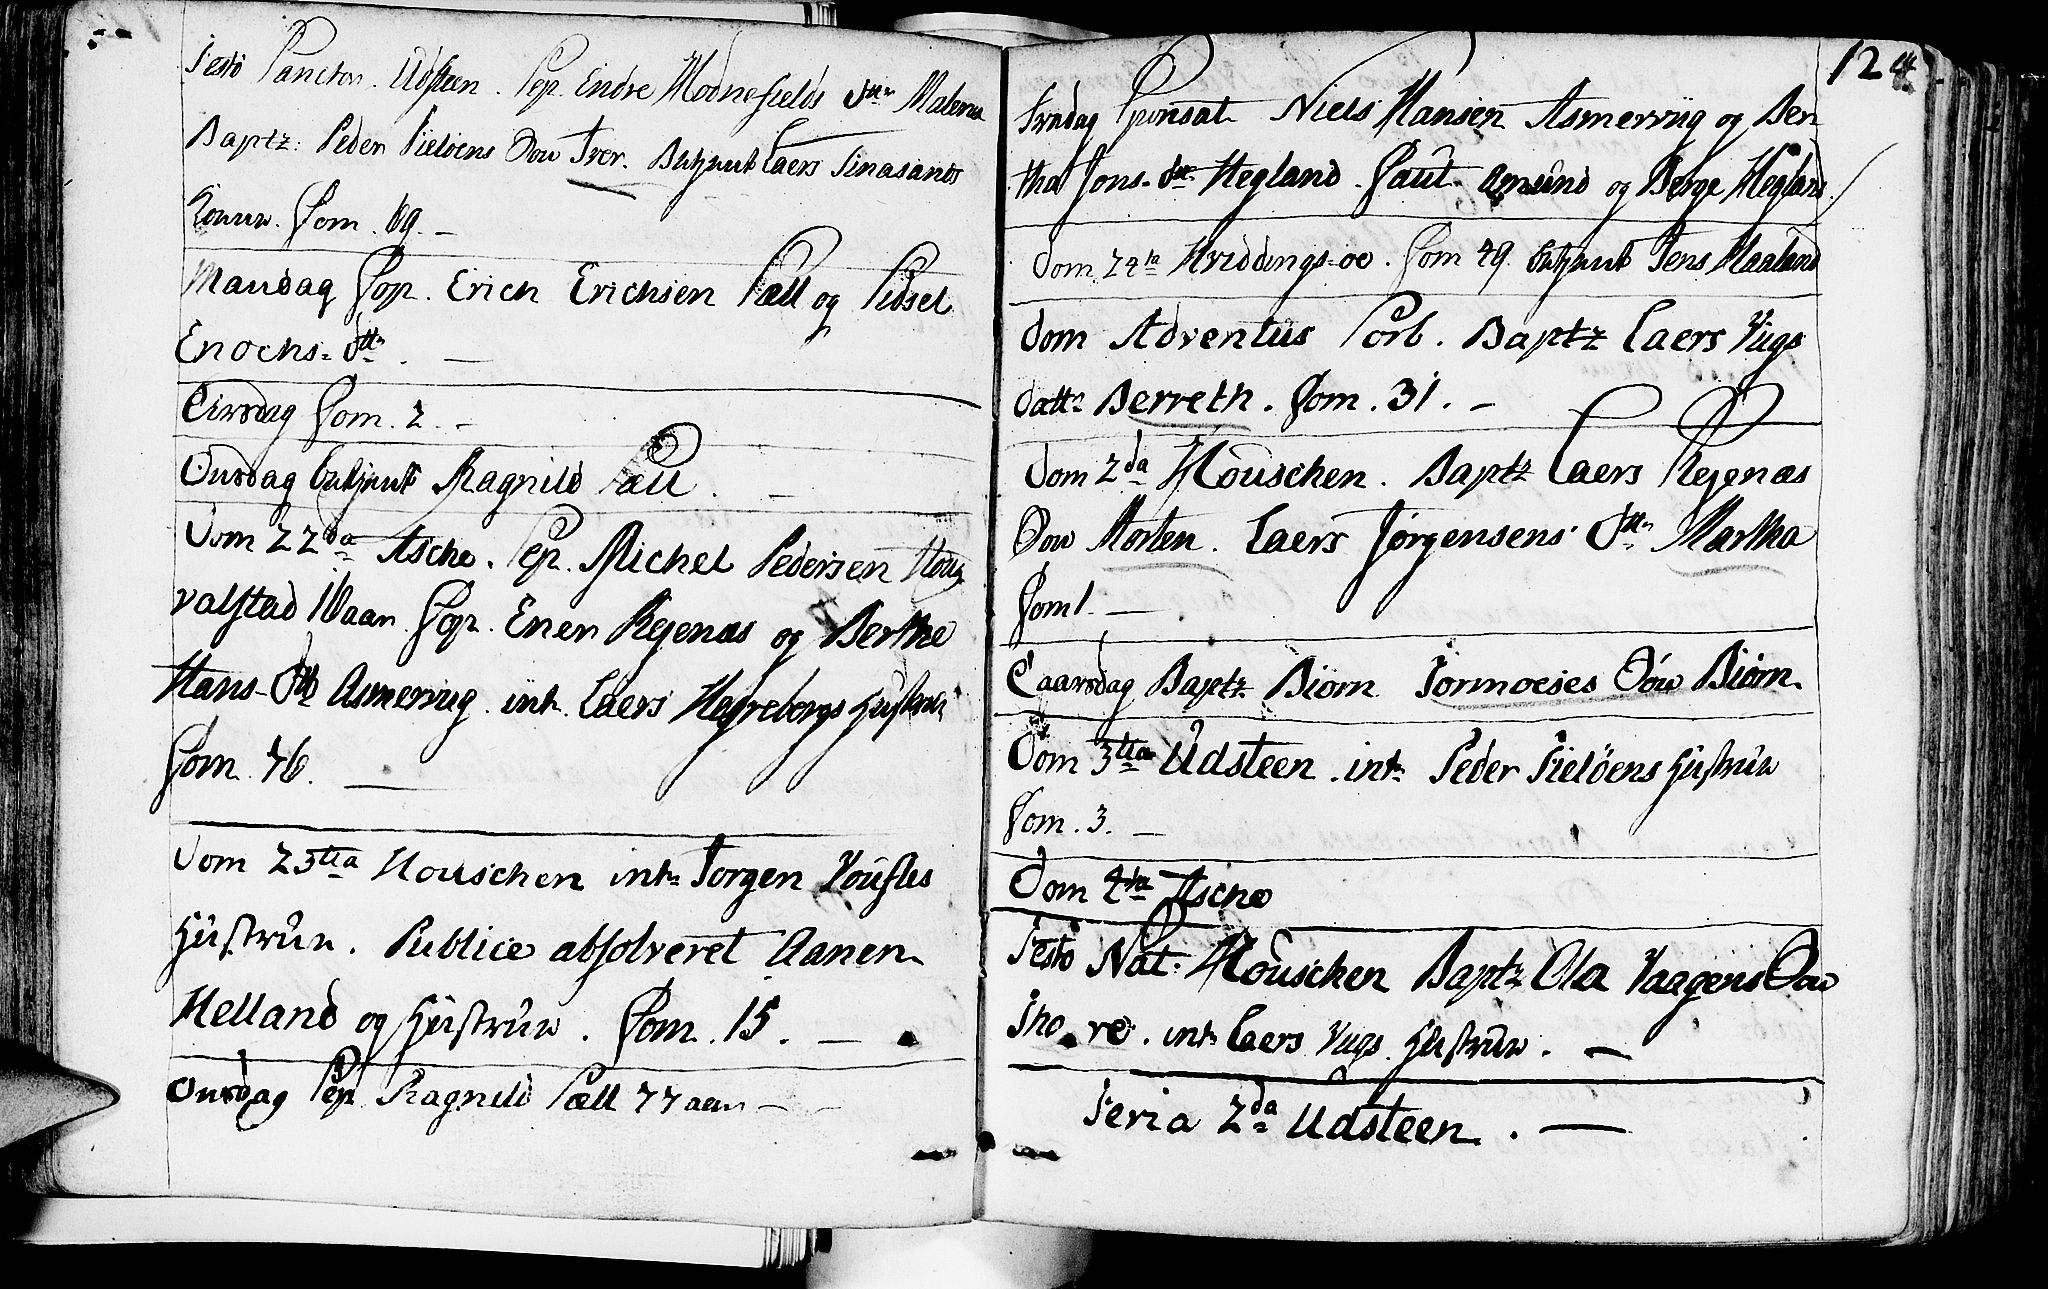 Festo Sanctor. Udsteen. Sep. Endre Hodnefields dttr Malena
Baptz: Peder Fieløens Søn Iver. Laers Finasands
Konnu. Com. 69. —
Mandag Cop. Erich Erichsen Sæll og Sidsel
Enochs-dttr. —
Tirsdag Com. 2. —
Onsdag Ragnild Sæll. —
Dom 22da Aschø. Sep. Michel Pedersen Houg
valstad 16 aar Cop. Ener Rejenæs og Berthe
Hans-Dtt Asmervig. intr. Laers Hagrebergs Hustrue
Com. 76. —
Dom 23tia Houschen intr. Torgen Voustes
Hustrue. Publice absolveret Aanen
Helland og Hustrue. Com. 15. —
Onsdag Sep. Ragnild Sæll 77 aar —
124
Fredag Sponsat. Niels Hansen Asmervig og Ber
tha Jons-dttr Hegland. Caut. Amund og Berge Hegland.
Dom 24ta Hviddings-øe. Com 49. Jens Haaland
Dom Adventus Sorb. Baptz Laers Vugs
dattr Berreth. Com. 31. —
Dom 2da Houschen. Baptz Laers Rejenæs
Søn Morten. Laers Jørgensens Dttr Martha
Com 1. —
Laarsdag Baptz Biørn Tormoeses Søn Biørn.
Dom 3tia Udsteen. intr. Peder Fieløens Hustrue
Com. 3. —
Dom 4ta Aschø
Festo Nat: Houschen Baptz Ola Vaagens Søn
Tho re. intr. Laers Vugs Hustrue. —
Feria 2da Udsteen. —